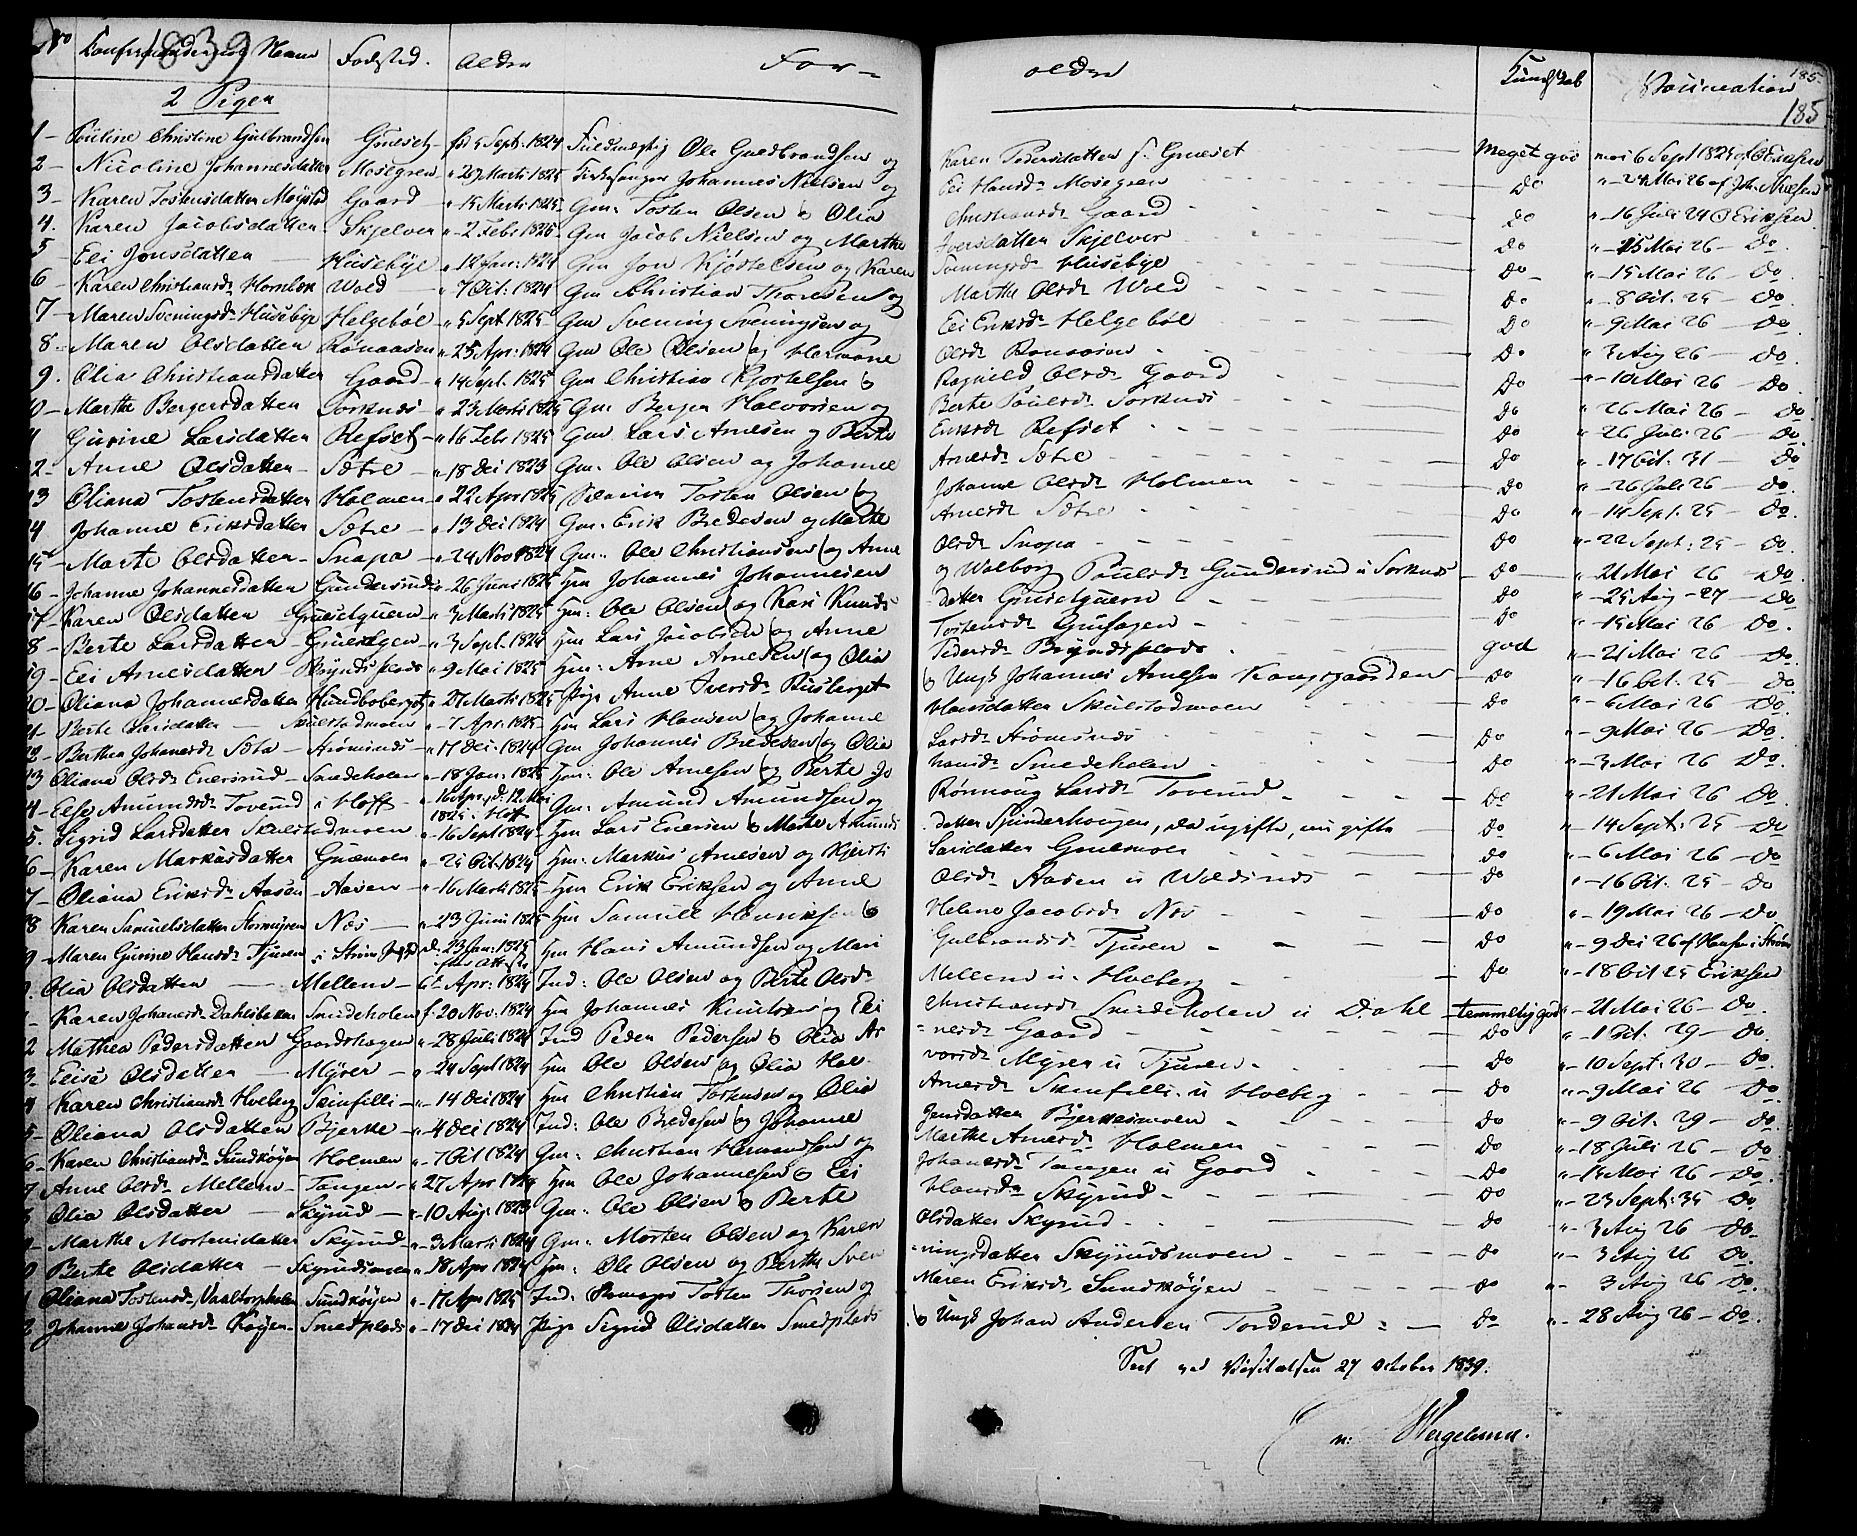 No Confirmandernes Navn 1839 Fødested. Alder For- ældre Kundskab Vaccination 185
185
2 Piger
1- Pouline Christine Gulbrandsen Grueset f. 5 Sept: 1824 Ole Guldbrandsen og Karen Pedersdatter Grueset Meget god 6 Sept 1825
2- Nicoline Johannesdatter Mosegren - 1825 Kirkesanger Johannes Nielsen og Eli Hansd. Mosegren Do 24 Mai 26 af Joh. Nielsen
3- Karen Tostensdatter Gaard - 15 Marti 1825 Gm: Tosten Olsen & Olia Christiansd. Gaard Do 16 Juli 24 O Eriksen
4. Karen Jacobsdatter Skjelver - 2 Febr 1825 Gm Jacob Nielsen og Marthe Iversdatter Skjelver Do 15 Mai 26 - Do.
5 Eli Jonsdatter Husebye - 12 Jan: 1824 Gm Jon Kjøstelsen og Karen Sveningsd. Husebye Do 15 Mai 26 - Do.
6 Karen Christiansd. Wold - 7 Oct: 1824 Gm Christian Thoresen og Marthe Olsd. Wold Do 8 Oct. 25 - Do.
7- Maren Sveningsd. Husebye Helgebøl - 5 Sept 1825 Gm Svening Sveningsen og Eli Eriksd. Helgebøl Do 9 Mai 26 - Do
8.- Maren Olsdatter Rønaasen 25 Apr: 1824 Gm Ole Olsen og Hermane Olsd. Do 3 Aug 26 - Do.
9. Olia Christiansdatter Gaard - 14 Sept. 1825 Gm Christian Kjøstelsen & Ragnild Olsd. Gaard Do 10 Mai 26 - Do
10- Marthe Bergersdatter Sorknes - 23 Marti 1825 Gm Berger Halvorsen og Berte Paulsd. Sorknes Do 26 Mai 26 - Do
11 Gurine Larsdatter Refset - 16 Febr 1825 Gm Lars Arnesen og Berte Eriksd. Refset Do 26 Juli 26 - Do.
12- Anne Olsdatter - Sætre - 18 Dec 1823 Gm: Ole Olsen og Johanne Arnesd. Sætre Do 17 Oct. 31 - Do
13 Oliana Tostensdatter Holmen 22 Apr 1825 Tosten Olsen og Johanne Olsd. Holmen Do 26 Juli 26 - Do.
14 Johanne Eriksdatter Sætre - 13 Dec 1824 Gm: Erik Bredesen og Marte Arnesd. Sætre Do 14 Sept. 25 - Do.
15- Marte Olsdatter - Snapa - 24 Nov 1824 Gm: Ole Christiansen og Anne Olsd. Snapa Do 22 Sept: 25 - Do.
16- Johanne Johannesdatter Gundersrud 26 Juni 1825 Hm Johannes Johannesen og Walborg Paulsd. Gundersrud u Sorknes Do 21 Mai 26 - Do
17- Karen Olsdatter - 3 Marti 1825 Hm: Ole Olsen og Kari Knuds-datter Do 25 Aug - 27 - Do
18- Berte Larsdatter - 3 Sept. 1824 Hm Lars Jacobsen og Anne Tostensd. Do 15 Mai 26 Do.
19- Eli Arnesdatter - 9 Mai 1825 Hm: Arne Arnesen og Olia Pedersd. god 21 Mai 26 - Do.
20- Oliana Johannesdatter 27 Marti 1825 Pige Anne Iversd. Busberget & Ungk Johannes Arnesen Kongsgaarden Do 16 Oct. 25 - Do
21- Berte Larsdatter - Skulstadmoen - 7 Apr. 1825 Hm Lars Hansen og Johanne Hansdatter Skulstadmoen Do 6 Mai 26 - Do.
22- Berthea Johannesd. Sæter - Strømsnes - 17 Dec. 1824 Gm Johannes Bredesen og Olia Larsd. Strømsnes Do 9 Mai 26 - Do.
23 Oliana Olsd. Enersrud - Smedeholen - 18 Jan: 1825 Hm: Ole Arnesen og Berte Jo-hansd. Smedeholen Do 3 Mai 26 Do.
24- Else Amundsd. Toverud - i Hoff - 16 Apr, d. 12 Mai 1825 i Hoff Gm: Amund Amundsen og Rønnoug Larsd. Toverud Do 21 Mai 26 Do.
25. Sigrid Larsdatter Skulstadmoen - 16 Sept 1824 Hm Lars Enersen & Marte Amunds-datter, da ugifte, nu gifte Do 14 Sept: 25 - Do
26- Karen Markusdatter Gruemoen - 25 Oct. 1824 Hm: Markus Arnesen og Kjersti Larsdatter Gruemoen Do 6 Mai 26 - Do
27- Oliana Eriksd. Aasen - Aasen - 16 Marti 1825 Hm Erik Eriksen og Anne Olsd. Aasen u Woldsnes Do 16 Oct. 25 - Do
28 Karen Samuelsdatter Næs - 23 Juni 1825 Hm Samuel Henriksen & Helene Jacobsd. Næs Do 19 Mai 26 - Do.
29- Maren Gurine Hansd. Tjuren - i Strøm d. 23 Jan: 1825 efter Attest Hm Hans Amundsen og Mari Gulbrandsd. Tjuren Do 9 Dec 26 af Hansen i Strøm
30. Olia Olsdatter - Mellem - 6 Apr: 1824 Ind: Ole Olsen og Berte Olsd. Mellem u. Hoeberg Do 18 Oct 25 Eriksen
31- Karen Johannesd. Dahlsbakken Smedeholen f. 20 Nov. 1824 Hm Johannes Knudsen og Eli Christiansd. Smedeholen u Dahl temmelig god 21 Mai 26 - Do.
32 Mathea Pedersdatter Gaardshagen 28 Juli 1824 Ind Peder Pedersen & Olia Ar-nesd. Gaard Do 1 Oct. 29 - Do.
33- Elise Olsdatter - Myrer - 24 Sept 1824 Hm Ole Olsen og Olia Hal-vorsd. Myren u Tjuren Do 10 Sept: 30 - Do.
34 Karen Christiansd. Hoeberg Skinfelli - 14 Dec 1824 Hm Christian Tostensen og Olia Arnesd. Skinfelli u Hoeberg Do 9 Mai 26 - Do
35- Oliana Olsdatter Bjerke - 4 Dec 1824 Ind: Ole Bredesen og Johanne Jensdatter Bjerkesmoen Do 9 Oct. 29 - Do.
36- Karen Christiansd. Sundkøyen Holmen - 7 Oct 1824 Gm: Christian Hermandsen og Marthe Arnesd. Holmen Do 18 Juli 26 - Do
37 Anne Olsd. Mellem - Tangen - 27 Apr 1824 Hm Ole Johannesen & Eli Johannesd. Tangen u Gaard Do 14 Mai 26 - Do.
38 Olia Olsdatter - Skyrud - 10 Aug. 1823 Gm: Ole Olsen & Berte Hansd. Skyrud Do 23 Sept: 35 Do
39- Marthe Mortensdatter Skyrud - 3 Marti 1824 Gm: Morten Olsen og Karen Olsdatter Skyrud Do 3 Aug 26 - Do.
40 Berte Olsdatter - Skyrudsmoen 18 Apr 1824 Hm: Ole Olsen og Berthe Sven-ningsdatter Skyrudsmoen Do 3 Aug 26 Do.
41 Oliana Tostensd. Sundkøyen - 17 Apr 1825 Ind: Tosten Thorsen og Maren Eriksd. Sundkøyen Do 3 Aug 26 Do.
42 Johanne Johansd. Køyen - Smedplads - 17 Dec 1824 Pige Sigrid Olsdatter Smedplads & Ungk Johan Andersen Torderud Do 28 Aug 26 - Do.
Seet ved Visitatsen 27 October 1839.
N: Wergeland.